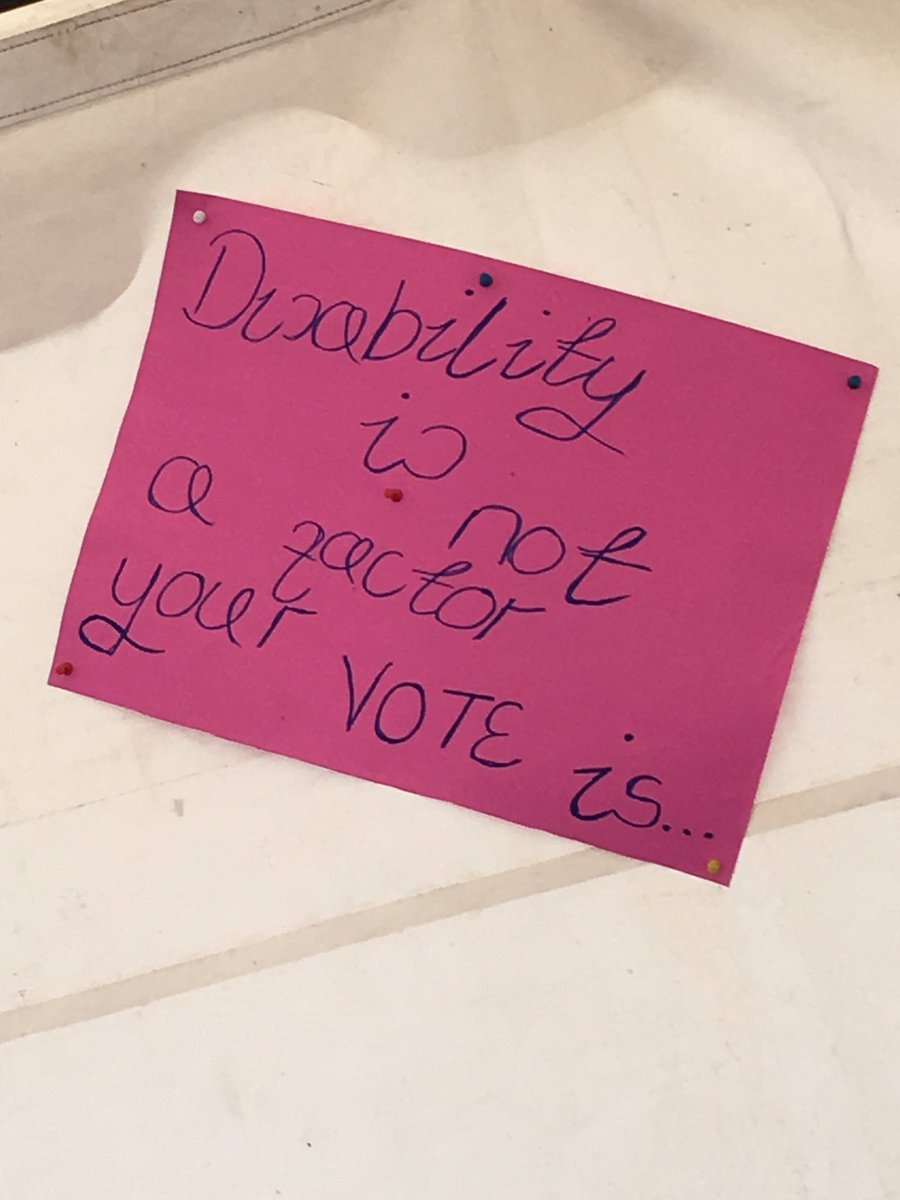 Disability
is not
a factor
your VOTE is...